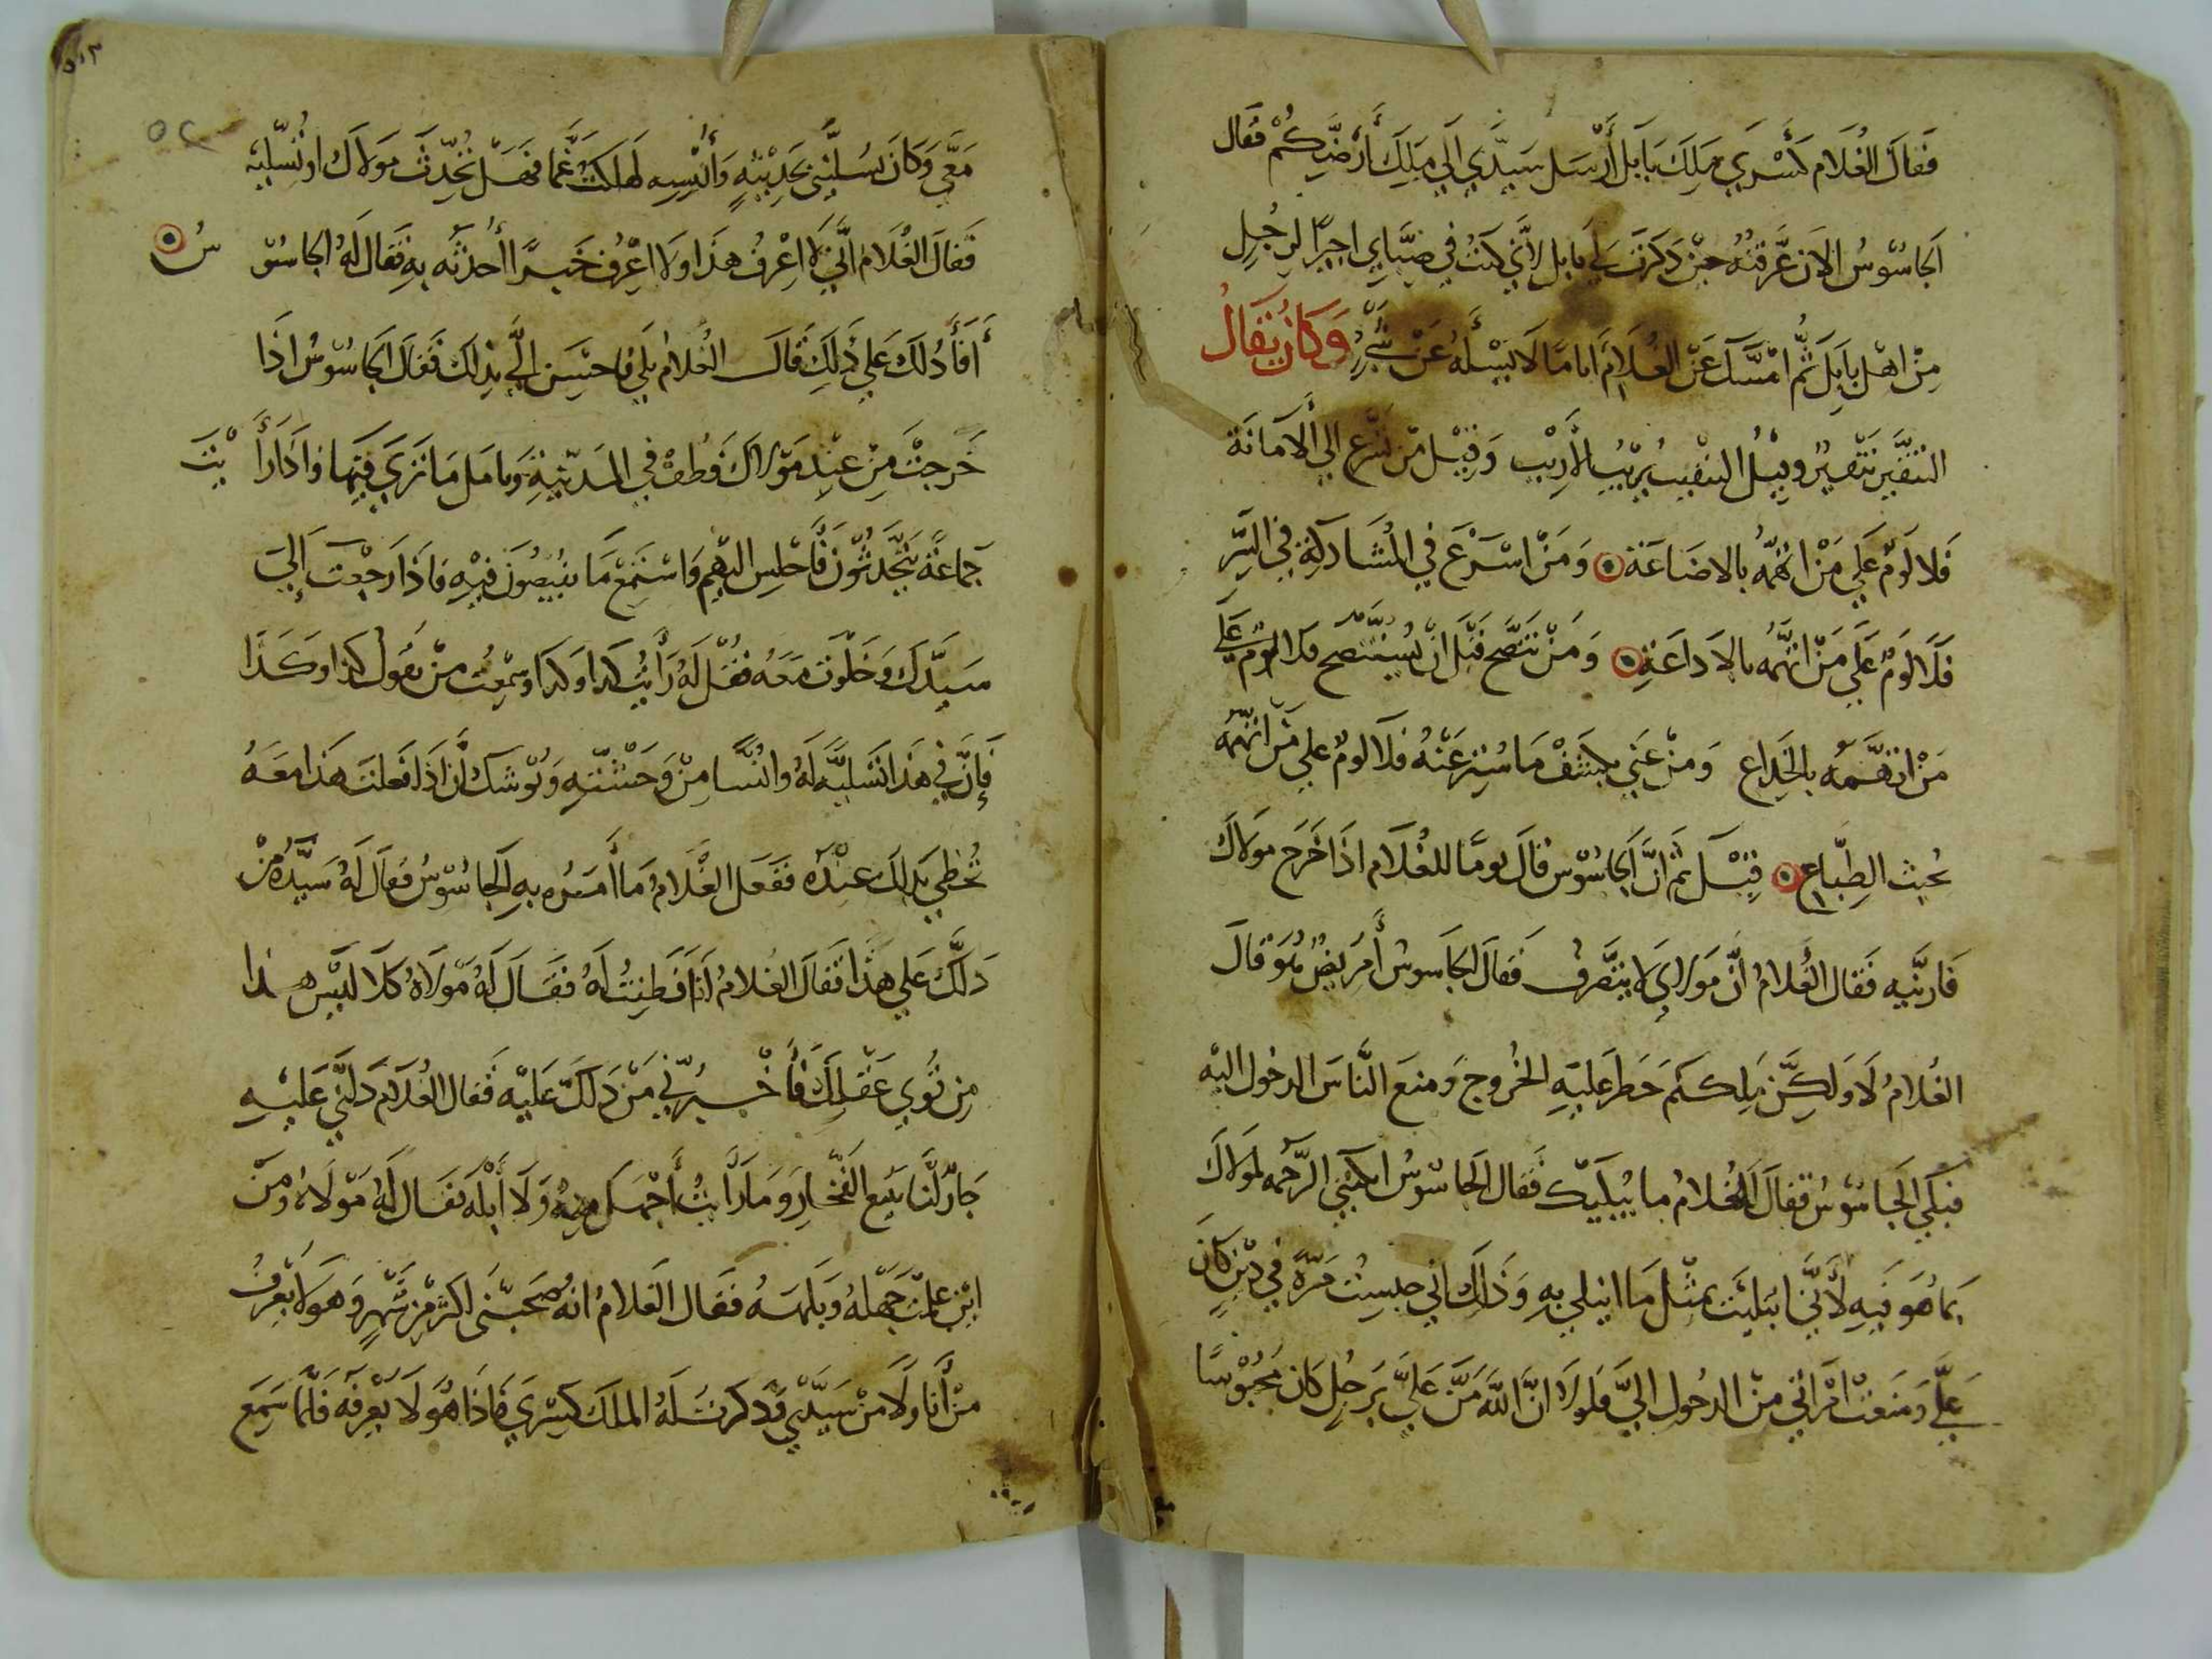 فَقَالَ الغُلَام كَسْرَي مَلِكَ بَابَل أَرْسَل سَيِّدِي اِلَي مَلِكَ أَرْضِكُمْ فَقَال
اَلجَاسُوْسُ الاَن عَرَفْتُهُ حِيْنَ ذَكَرتَ لِي بَابل لاَنِّي كنتُ في صِبَايِ اجيرًا لِرَجُلِ
مِنْ اهْل بَابِل ثُمَّ امْسَكَ عَنْ الغُلَامَ اياما لَا يَسْأَلهُ عَنْ شَيْءٍ وَكَانَ يُقَالُ
التنقير تنفير وقيل النقيب يريبُ الأرِيْب وَقِيْل مَن تسَرَّع الي الأَمَانَة
فَلا لَومَ عَلَي مَنْ اتهَمَهُ بالاضَاعَة وَمَنْ اسْرَعَ في المُشَارَكَةِ في السِّرِ
فَلَا لَومَ عَلَي مَنْ اتَّهَمَهُ بالاذَاعَةِ وَمَنْ نَصَحَ قَبَل انْ يُسْتَنْصَح فلا لَومَ عَلَي
مَنْ اتهَمَهُ بالخِدَاع وَمَنْ عَنَي بكَشْفْ مَا سُتِرَ عَنْهُ فَلَا لوم علي مَن اتَّهَمَهُ
بخبث الطِبَّاع قِيْلَ ثم انَّ اَلجَاسُوْس قالَ يومًا للغُلَام اذَا خَرَج مَولَاكَ
فَارنِيه فَقَال الغُلَامُ انَّ مَولاي لا يتصَرفُ فَقَالَ الجَاسوس أَمَرِيضٌ هُوَ قالَ
الغُلَامُ لَا وَلَكِنَّ مَلِككم حَظَر عَليهِ الخُروج وَمنعَ النَّاسَ الدخُول اليْه
فبَكَي الجَاسُوْسُ فقالَ الغُلَامُ ما يُبكيْكَ فَقال الجَاسُوْسُ ابكتني الرَّحمَه لمَولَاكَ
بمَا هُوَ فِيهِ لأَنّي ابتليتُ بِمثْل مَا ابتلي بِهِ وَذَلِكَ اني حبستُ مَرَّة في دَيْنٍ كَانَ
عَلَيَّ وَمَنعَتْ امْرَاتي مِنْ الدخُول اليَّ فَلَولَا انَّ اللَّهَ مَنَّ عَلَيَّ بِرَجُلِ كَان مَحبُوْسًا
معَي وَكَانَ يُسَلّيني بحَدِيثِهِ وَأُنْسِه لهَلكتُ غمًّا فهَل تُحَدّثَ مَولَاكَ او تُسَلّيهِ
فَقَالَ الغُلَامُ انّي لَا اعْرِفُ هَذَا ولَا اعْرِفُ خَبرًا أُحدثَه بِه فَقَالَ لَهُ الجاسُوْسُ
أَفَأَدُلكَ عَلَي ذَلِكَ قَالَ الغُلَامُ بلَي فاحسِن اليَّ بذِلك فَقَال الجَاسُوْسُ اذَا
خَرَجتَ مِنْ عِنِد مَولَاكَ فَطُفْ في المَدينَةِ وَتامل مَا تَرَي فِيْهَا فاذَا رَأَيْتَ
جَماعَةً يَتَحَدثُوْنَ فَاجْلِس اليْهِم وَاسْتَمِعْ مَا يفيضُونَ فِيْهِ فاذَا رجعت إلي
سَيِّدكَ وَخلَوتَ مَعَه فَقُلْ لَهُ رَأَيتُ كذا وكذَا وسَمِعتُ مَنْ يقول كذا وكَذَا
فَإِنَّ في هَذَا تَسْلِيَةً لَهُ وانُسًا مِنْ وَحْشَتِه وَيُوشكُ انْ اذَا فعَلتَ هَذَا معَهُ
تُحظي بذَلكَ عنْدَه فَفَعَل الغُلَامُ مَا أَمَرَه بهِ اَلجَاسُوْسُ فَقَالَ لَهُ سَيِّدُهُ مَنْ
دَلَّكَ عَلي هَذَا فَقَالَ الغُلَامُ أَنَا فَطِنتُ لَهُ فَقَالَ لَهُ مَولَاهُ كَلَا لَيْسَ هَذا
مِن قُوي عَقْلِكَ فَأَخْبِرْني مَنْ دَلكَ عَليْه فَقال الغُلَامُ دَلَّنِي عَلَيهِ
جَارٌ لَنَا يَبِيع الفخَّارَ وَمَا رَأَيتُ أَجهَل مِنهُ وَلَا أَبْلَه فقَالَ لَهُ مَوْلَاهُ وَمِنْ
اين علِمتَ جَهْلَهُ وَبَلهَهُ فَقَال الغَلَامُ انهُ صَحبَني اكثر مِن شَهْرٍ وَهوَ لَا يَعْرفُ
مَنْ أَنَا ولَا مَنْ سَيِّدْي وقَدْ ذَكَرتُ لَهُ الملكَ كِسْرَي فاذَا هُوَ لَا يَعْرِفَه فَلَمَّا سَمِعَ